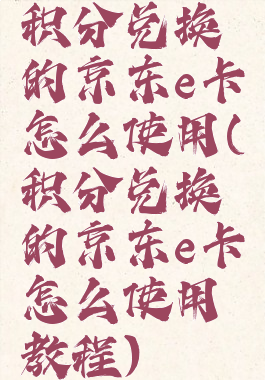 积分兑换
的京东e卡
怎么使用(
积分兑换
的京东e卡
怎么使用
教程)